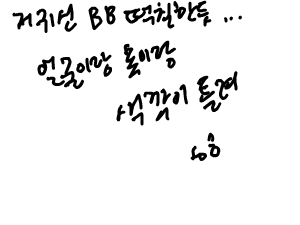 저저선 BB 떡칠한듯 ...
얼굴이랑 목이랑
색깔이 틀려
ㅎㅎ